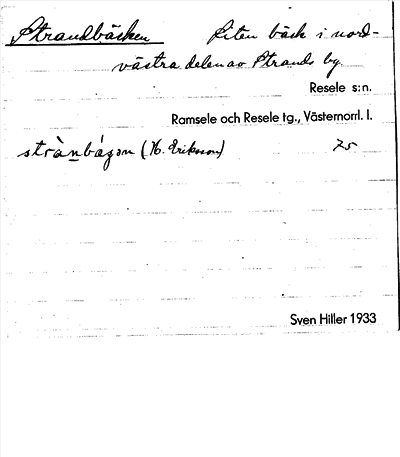 Strandbäcken Liten bäck i nord-
västra delen av Strands by.
Resele s:n.
Ramsele och Resele tg., Västernorrl. l.
(H. Eriksson) 75
Sven Hiller 1933